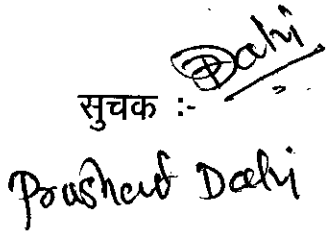 सुचक :- Dahi
Prashant Dahi